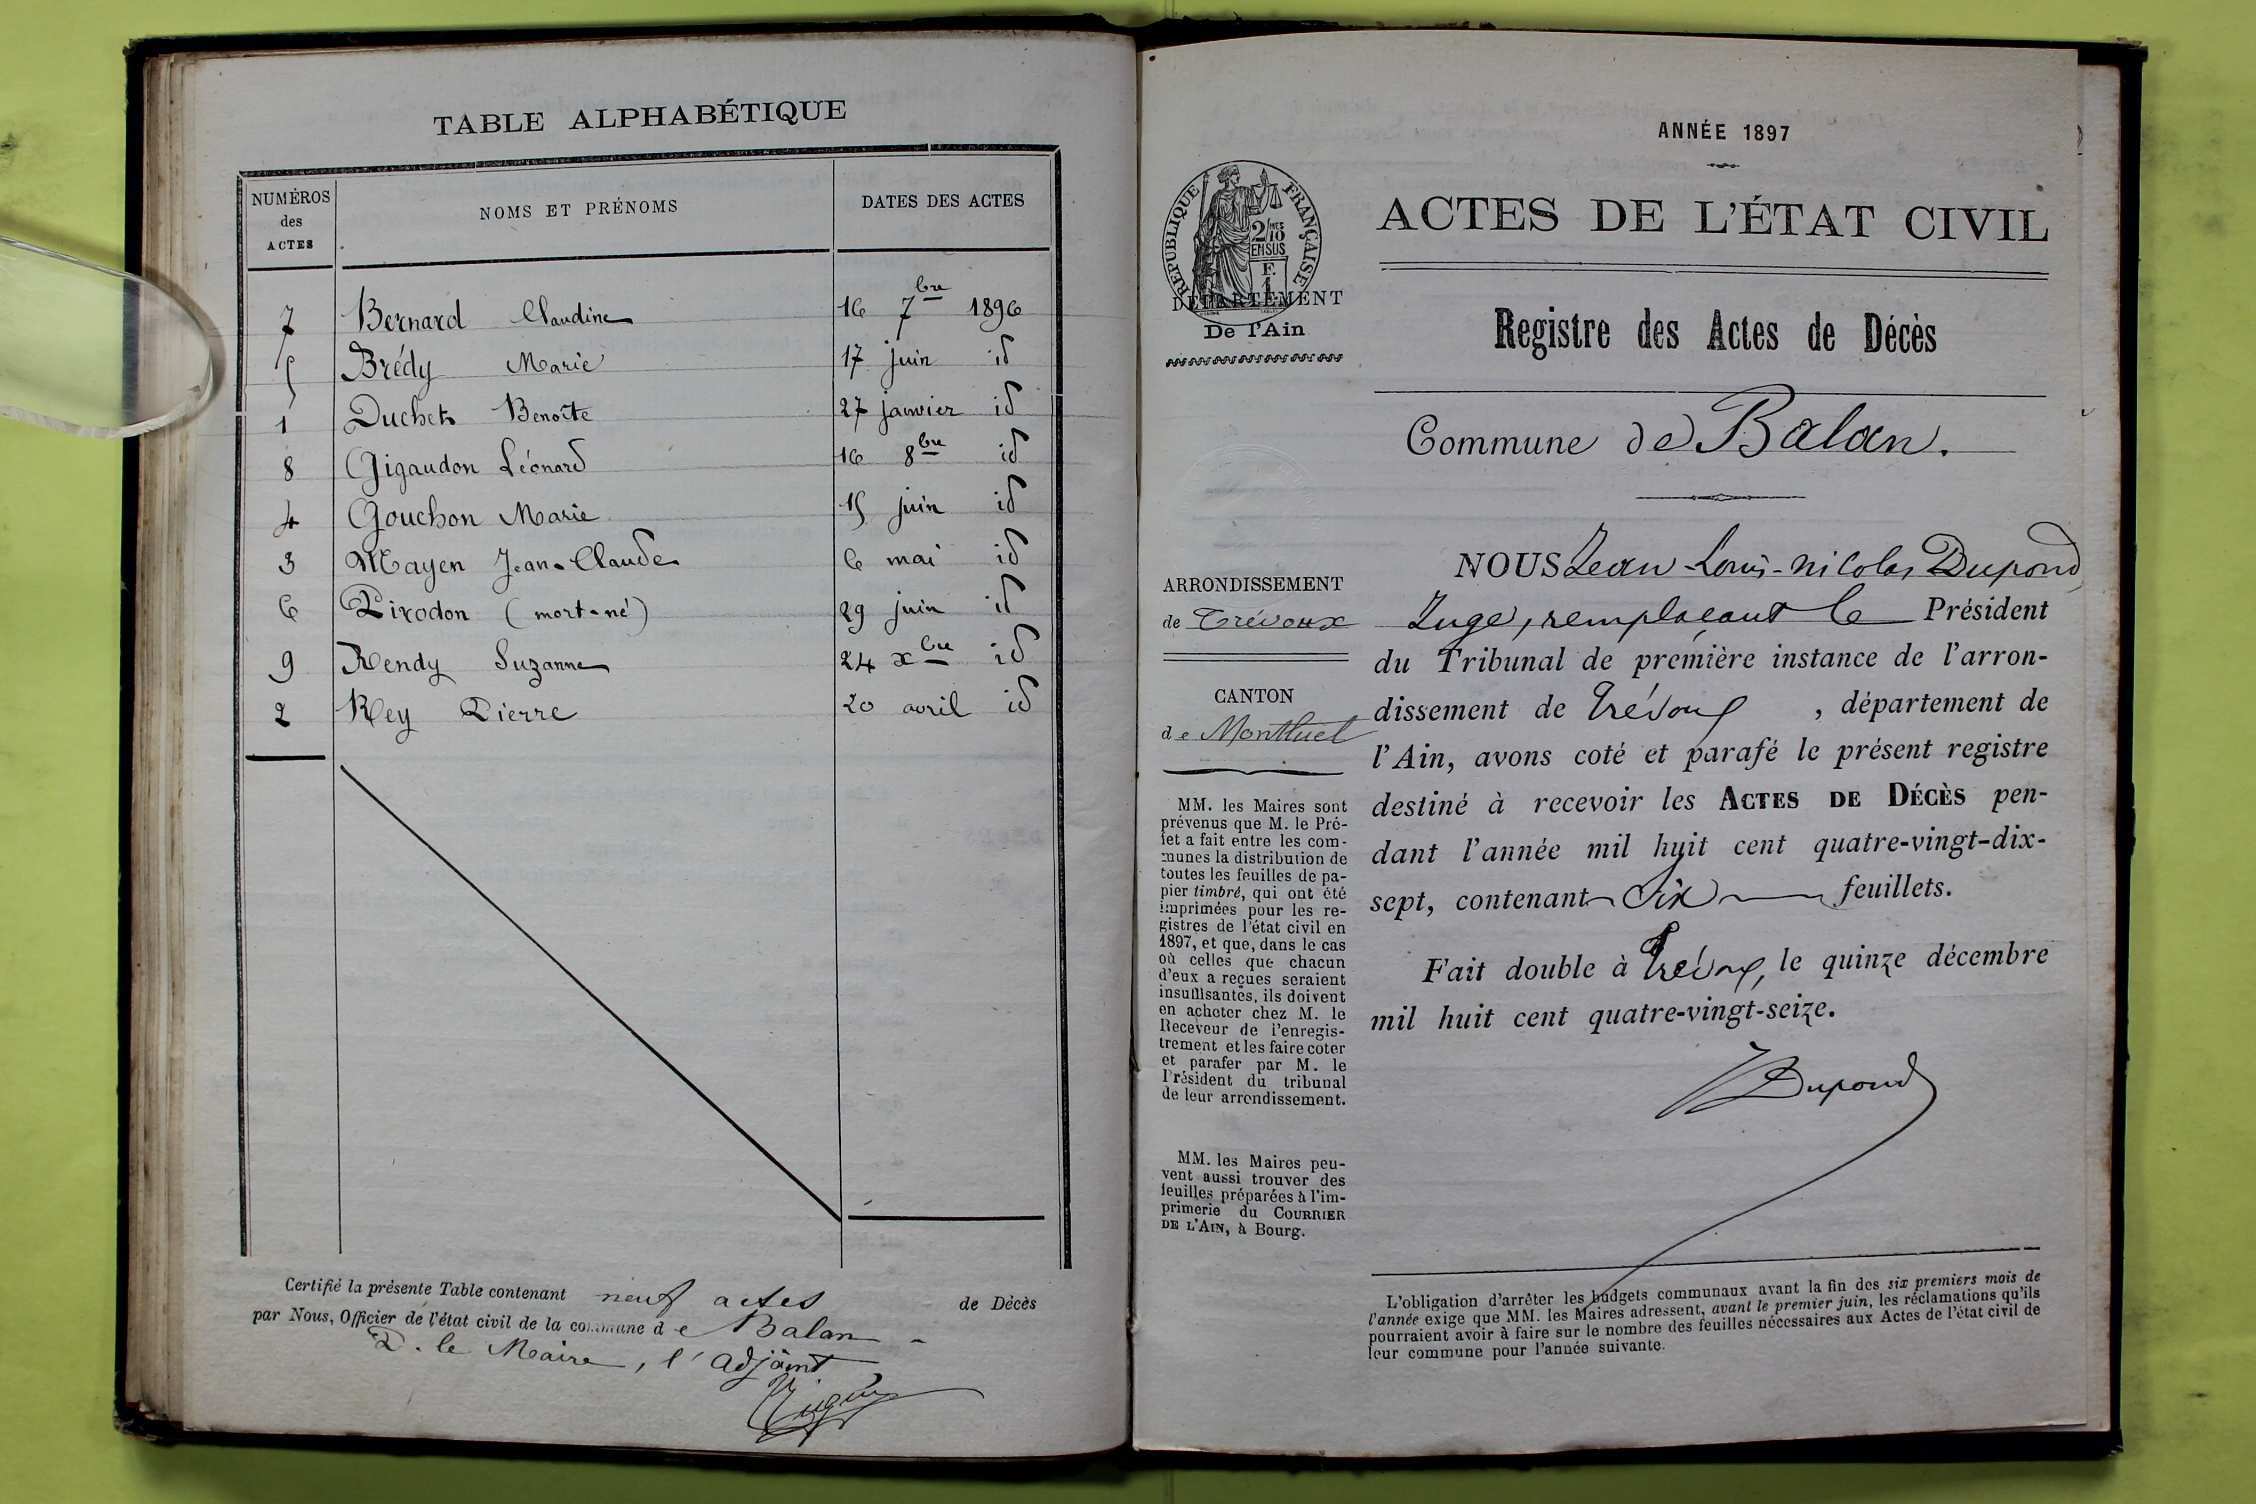 TABLE ALPHABÉTIQUE
NUMÉROS
des
ACTES
NOMS ET PRÉNOMS
DATES DES ACTES
7 Bernard Claudine 16 7bre 1896
5 Brédy Marie 17 juin id
1 Duchet Benoîte 27 janvier id
8 Gigaudon Léonard 16 8bre id
4 Gouchon Marie 15 juin id
3 Mayen Jean-Claude 6 mai id
6 Pirodon (mort-né) 29 juin id
9 Rendy Suzanne 24 xbre id
2 Rey Pierre 20 avril id
Certifié la présente Table contenant neuf actes de Décès
par Nous, Officier de l'état civil de la commune de Balan
P. le Maire, l'adjoint
ANNÉE 1897
ACTES DE L'ÉTAT CIVIL
RÉPUBLIQUE FRANÇAISE
2/10
EN SUS
F.
1
DÉPARTEMENT
De l'Ain
Registre des Actes de Décès
Commune de Balan.
ARRONDISSEMENT
de Trévoux
CANTON
de Montluel
MM. les Maires sont
prévenus que M. le Pré-
fet a fait entre les com-
munes la distribution de
toutes les feuilles de pa-
pier timbré, qui ont été
imprimées pour les re-
gistres de l'état civil en
1897, et que, dans le cas
où celles que chacun
d'eux a reçues seraient
insuffisantes, ils doivent
en acheter chez M. le
Receveur de l'enregis-
trement et les faire coter
et parafer par M. le
Président du tribunal
de leur arrondissement.
MM. les Maires peu-
vent aussi trouver des
feuilles préparées à l'im-
primerie du COURRIER
DE L'AIN, à Bourg.
NOUS Jean-Louis-Nicolas Dupond
Juge, remplaçant le Président
du Tribunal de première instance de l'arron-
dissement de Trévoux, département de
l'Ain, avons coté et parafé le présent registre
destiné à recevoir les ACTES DE DÉCÈS pen-
dant l'année mil huit cent quatre-vingt-dix-
sept, contenant six feuillets.
Fait double à Trévoux, le quinze décembre
mil huit cent quatre-vingt-seize.
Dupond
L'obligation d'arrêter les budgets communaux avant la fin des six premiers mois de
l'année exige que MM. les Maires adressent, avant le premier juin, les réclamations qu'ils
pourraient avoir à faire sur le nombre des feuilles nécessaires aux Actes de l'état civil de
leur commune pour l'année suivante.